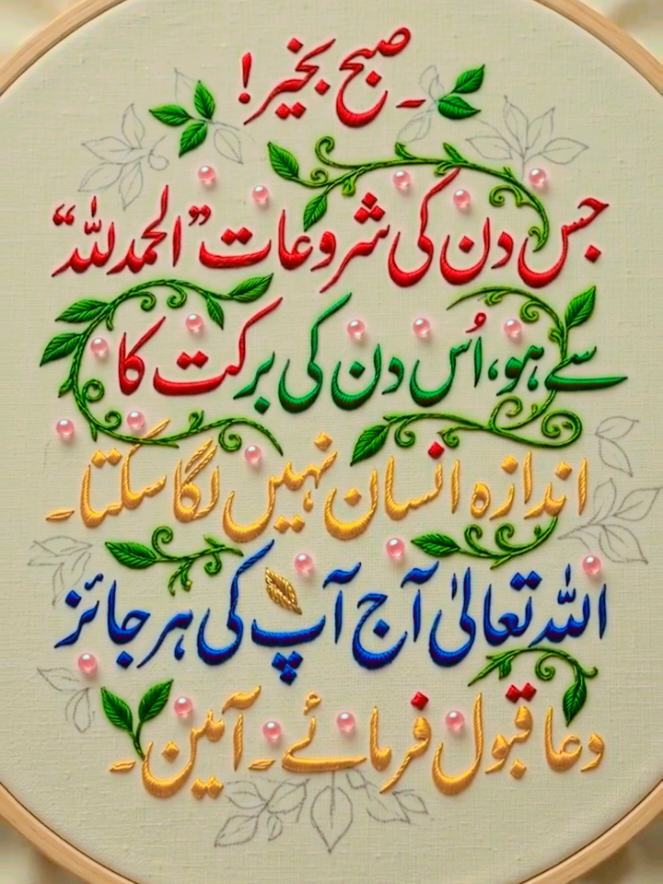 صبح بخیر!۔
جس دن کی شروعات ”الحمدللہ“
سے ہو، اُس دن کی برکت کا
اندازہ انسان نہیں لگا سکتا۔
اللہ تعالیٰ آج آپ کی ہر جائز
دعا قبول فرمائے۔ آمین۔